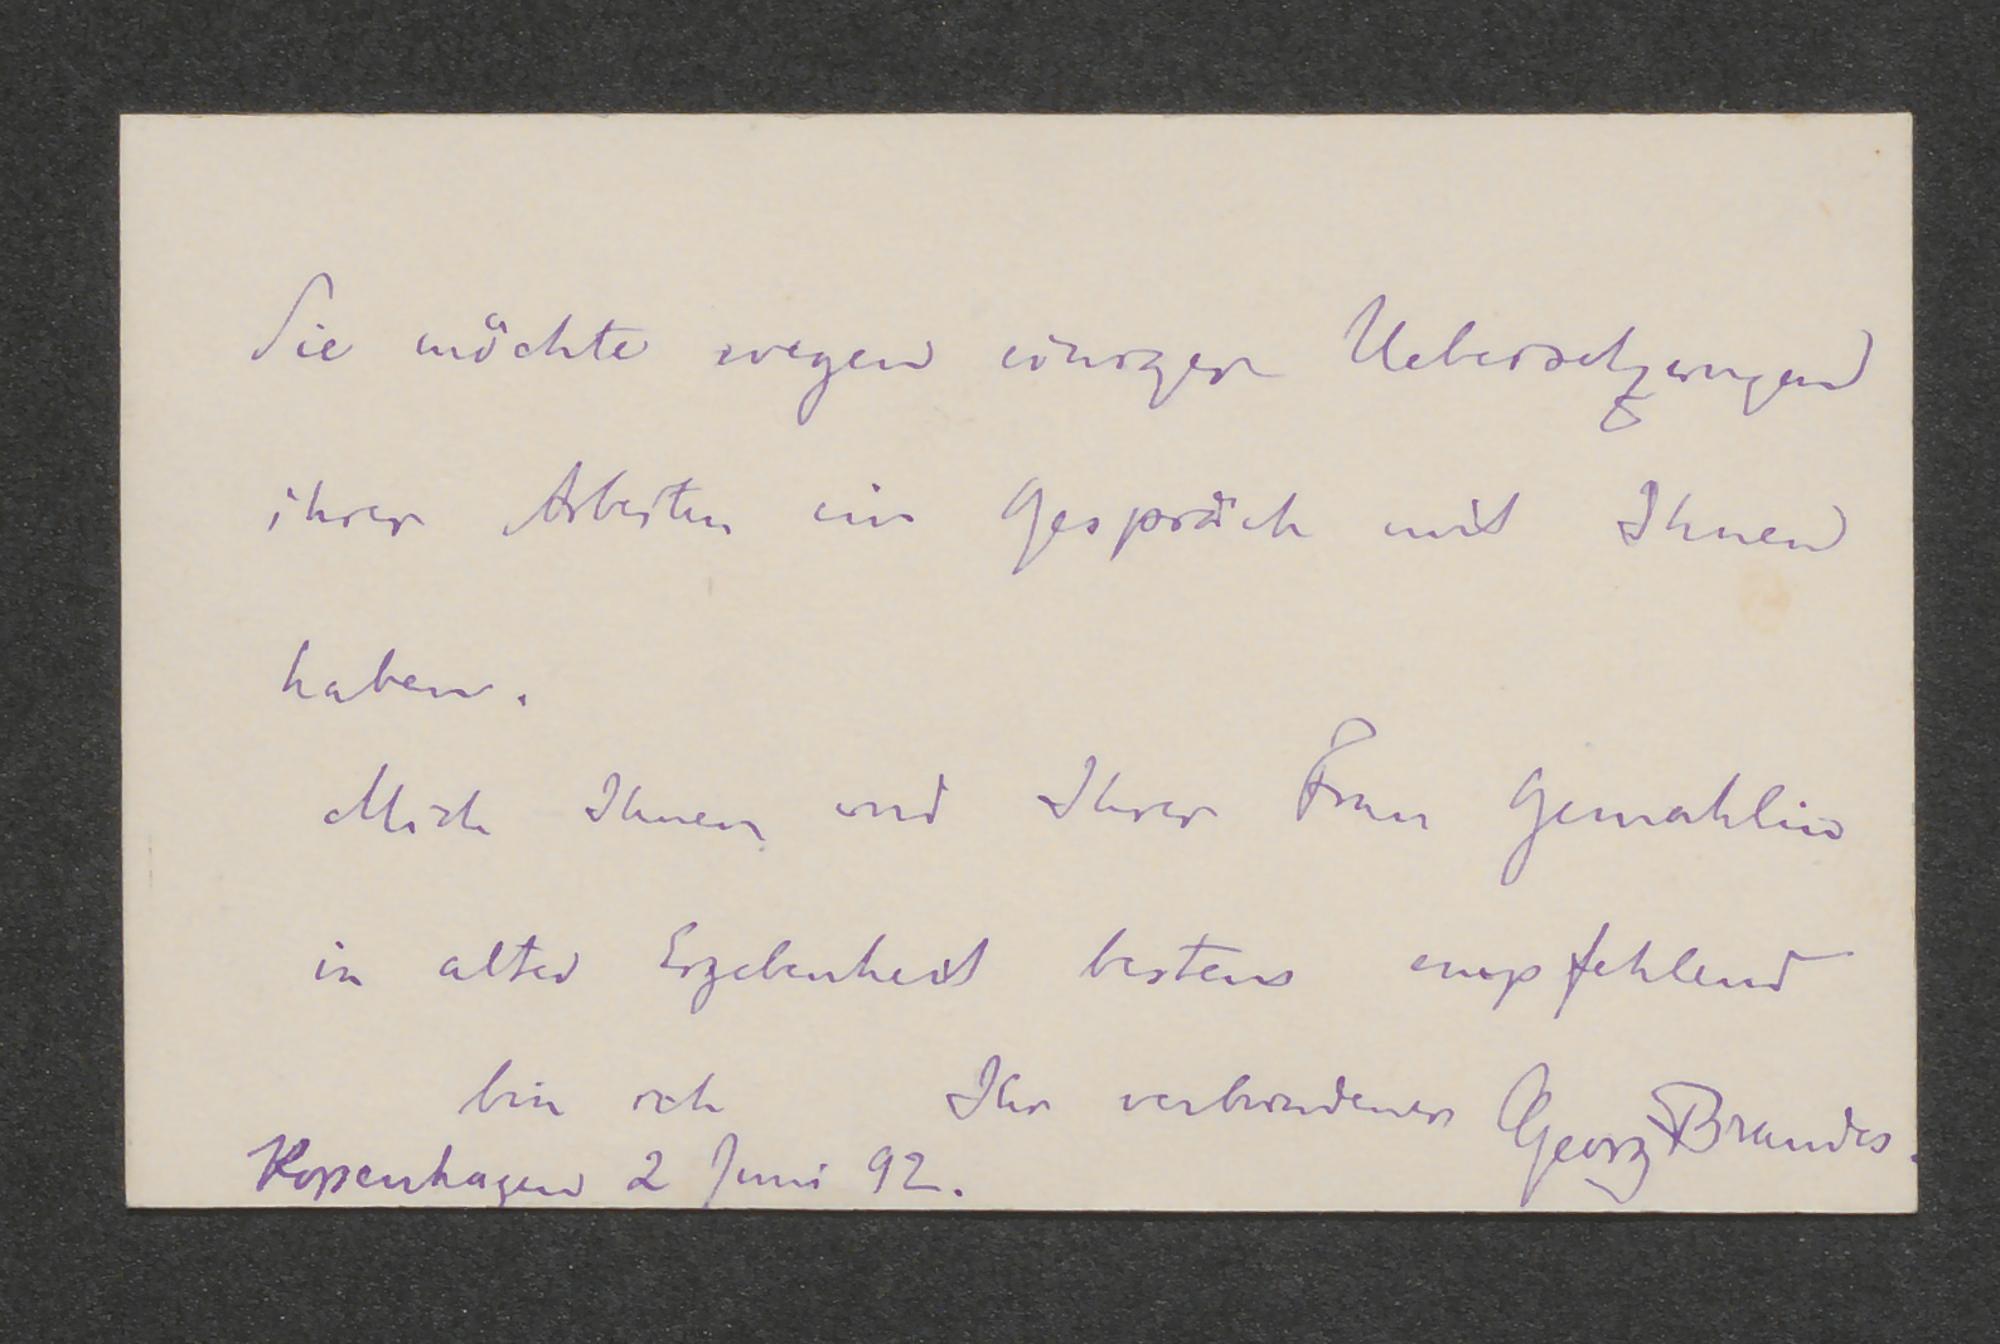 Sie möchte wegen einiger Uebersetzungen
ihrer Arbeiten ein Gespräch mit Ihnen
haben.
Mich Ihnen und Ihrer Frau Gemahlin
in alter Ergebenheit bestens empfehlend
bin ich Ihr verbundener Georg Brandes.
Kopenhagen 2 Juni 92.